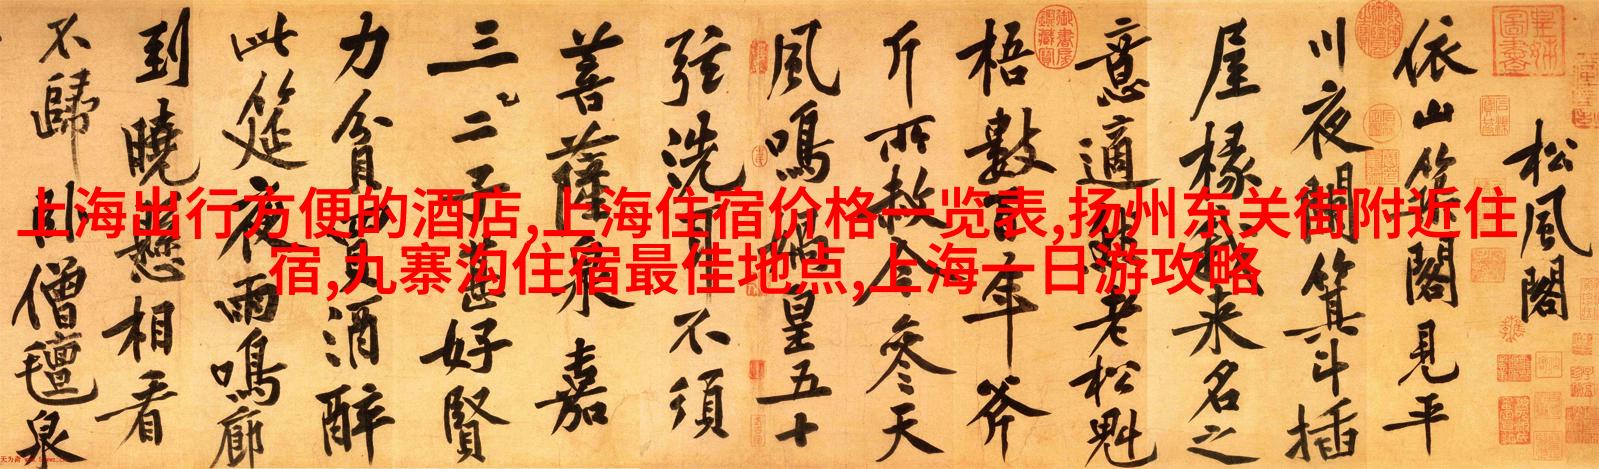 上海出行方便的酒店,上海住宿价格一览表,扬州东关街附近住
宿,九寨沟住宿最佳地点,上海一日游攻略
松風閣
依山築閣見平
川夜闌箕斗插
屋椽我来名之
意適然老松魁
梧數百年斧
斤所赦今參天
風鳴媧皇五十
弦洗耳不須
菩薩泉嘉
三二子甚好賢
力貧買酒醉
此筵夜雨鳴廊
到曉懸相看
不歸卧僧氊泉